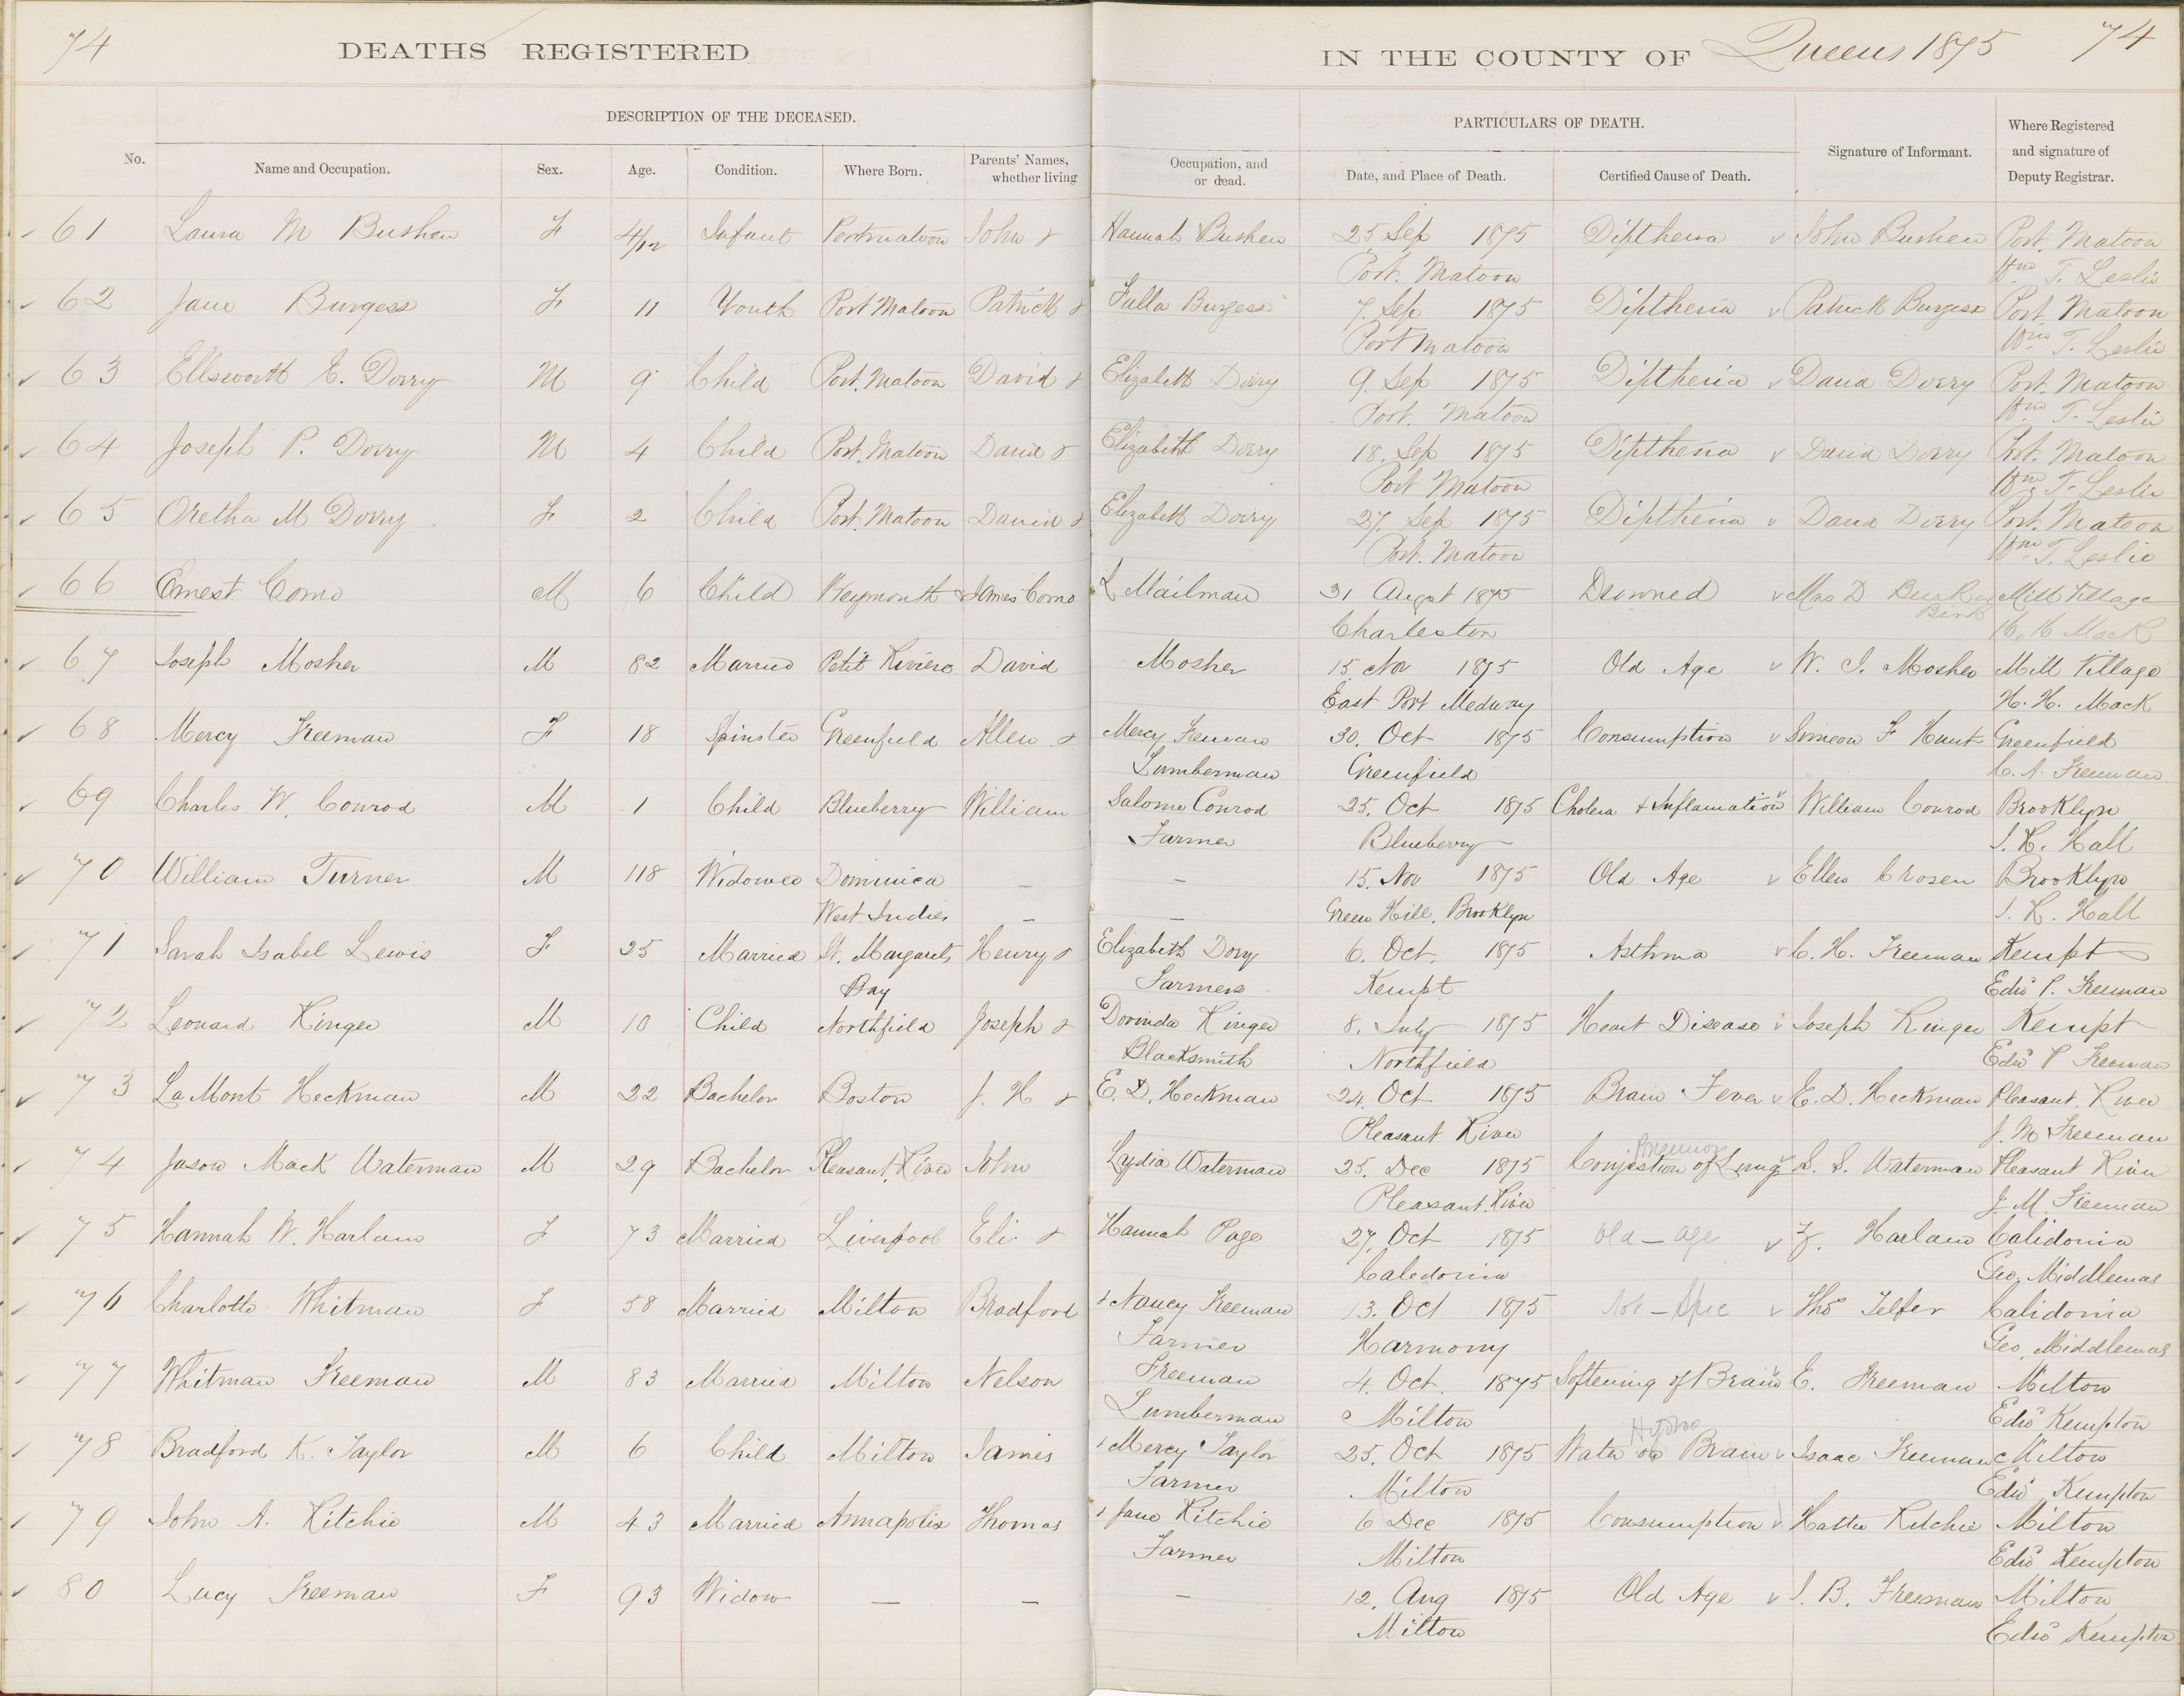 74 DEATHS REGISTERED IN THE COUNTY OF Queens 1875 74
DESCRIPTION OF THE DECEASED. PARTICULARS OF DEATH. Where Registered and signature of Deputy Registrar.
No. Name and Occupation. Sex. Age. Condition. Where Born. Parents' Names, whether living Occupation, and or dead. Date, and Place of Death. Certified Cause of Death. Signature of Informant.
61 Laura M Bushen F 4/12 Infant Portmatoon John & Hannah Bushen 25 Sep 1875 Diptheria John Bushen Port. Matoon
Port. Matoon Wm T. Leslie
62 Jane Burgess F 11 Youth Port Matoon Patrick & Falla Burgess 7. Sep 1875 Diptheria Patrick Burgess Port Matoon
Port Matoon Wm T. Leslie
63 Ellsworth E. Dorry M 9 Child Port. Matoon David & Elizabeth Dorry 9. Sep 1875 Diptheria David Dorry Port. Matoon
Port. Matoon Wm T. Leslie
64 Joseph P. Dorry M 4 Child Port. Matoon David & Elizabeth Dorry 18. Sep 1875 Diptheria David Dorry Port. Matoon
Port Matoon Wm T. Leslie
65 Oretha M Dorry F 2 Child Port. Matoon David & Elizabeth Dorry 27. Sep 1875 Diptheria David Dorry Port. Matoon
Port. Matoon Wm T. Leslie
66 Ernest Como M 6 Child Weymouth James Como & L Mailman 31 August 1875 Drowned Mrs D Mill Village
Charleston H. H. Mack
67 Joseph Mosher M 82 Married Petit Riviere David Mosher 15. Nov 1875 Old Age W. I. Mosher Mill Village
East Port Medway H. H. Mack
68 Mercy Freeman F 18 Spinster Greenfield Allen & Mercy Freeman 30. Oct 1875 Consumption Simeon F Hunt Greenfield
Lumberman Greenfield C. A. Freeman
69 Charles W. Conrod M 1 Child Blueberry William Salome Conrod 25. Oct 1875 Cholera & Inflamation William Conrod Brooklyn
Farmer Blueberry S. K. Hall
70 William Turner M 118 Widower Dominica — — 15. Nov 1875 Old Age Ellen Crosen Brooklyn
West Indies — — Green Hill. Brooklyn S. K. Hall
71 Sarah Isabel Lewis F 25 Married St. Margarets Henry & Elizabeth Dory 6. Oct. 1875 Asthma C. H. Freeman Kempt
Bay Farmers Kempt Edwd P. Freeman
72 Leonard Ringer M 10 Child Northfield Joseph & Dorinda Ringer 8. July 1875 Heart Disease Joseph Ringer Kempt
Blacksmith Northfield Edwd P Freeman
73 LaMont Heckman M 22 Bachelor Boston J. H & E. D. Heckman 24. Oct 1875 Brain Fever E. D. Heckman Pleasant River
Pleasant River J. M Freeman
74 Jason Mack Waterman M 29 Bachelor Pleasant. River John Lydia Waterman 25. Dec 1875 Conjestion of Lungs S. S. Waterman Pleasant River
Pleasant. River J. M. Freeman
75 Hannah W. Harlam F 73 Married Liverpool Eli & Hannah Page 27. Oct 1875 Old — Age Z. Harlam Calidonia
Caledonia Geo. Middlemas
76 Charlotte Whitman F 58 Married Milton Bradford & Nancy Freeman 13. Oct 1875 Not — Spec Thos Telfer Calidonia
Farmer Harmony Geo. Middlemas
77 Whitman Freeman M 83 Married Milton Nelson Freeman 4. Oct. 1875 Softening of Brain E. Freeman Milton
Lumberman Milton Edwd Kempton
78 Bradford K. Taylor M 6 Child Milton James & Mercy Taylor 25. Oct 1875 Water on Brain Isaac Freeman Milton
Farmer Milton Edwd Kempton
79 John A. Ritchie M 43 Married Annapolis Thomas & Jane Ritchie 6 Dec 1875 Consumption Hattie Ritchie Milton
Farmer Milton Edwd Kempton
80 Lucy Freeman F 93 Widow — — — 12. Aug 1875 Old Age S. B. Freeman Milton
Milton Edwd Kempton